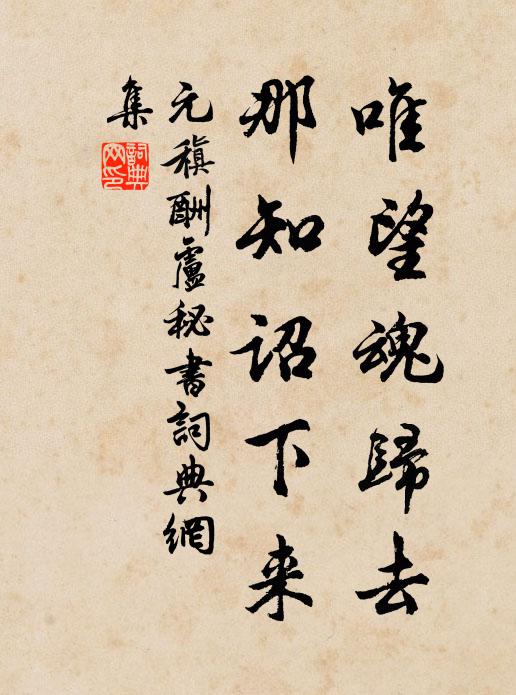 唯望魂歸去
那知詔下来
元稹酬盧秘書詞典網
集
詞典
网印